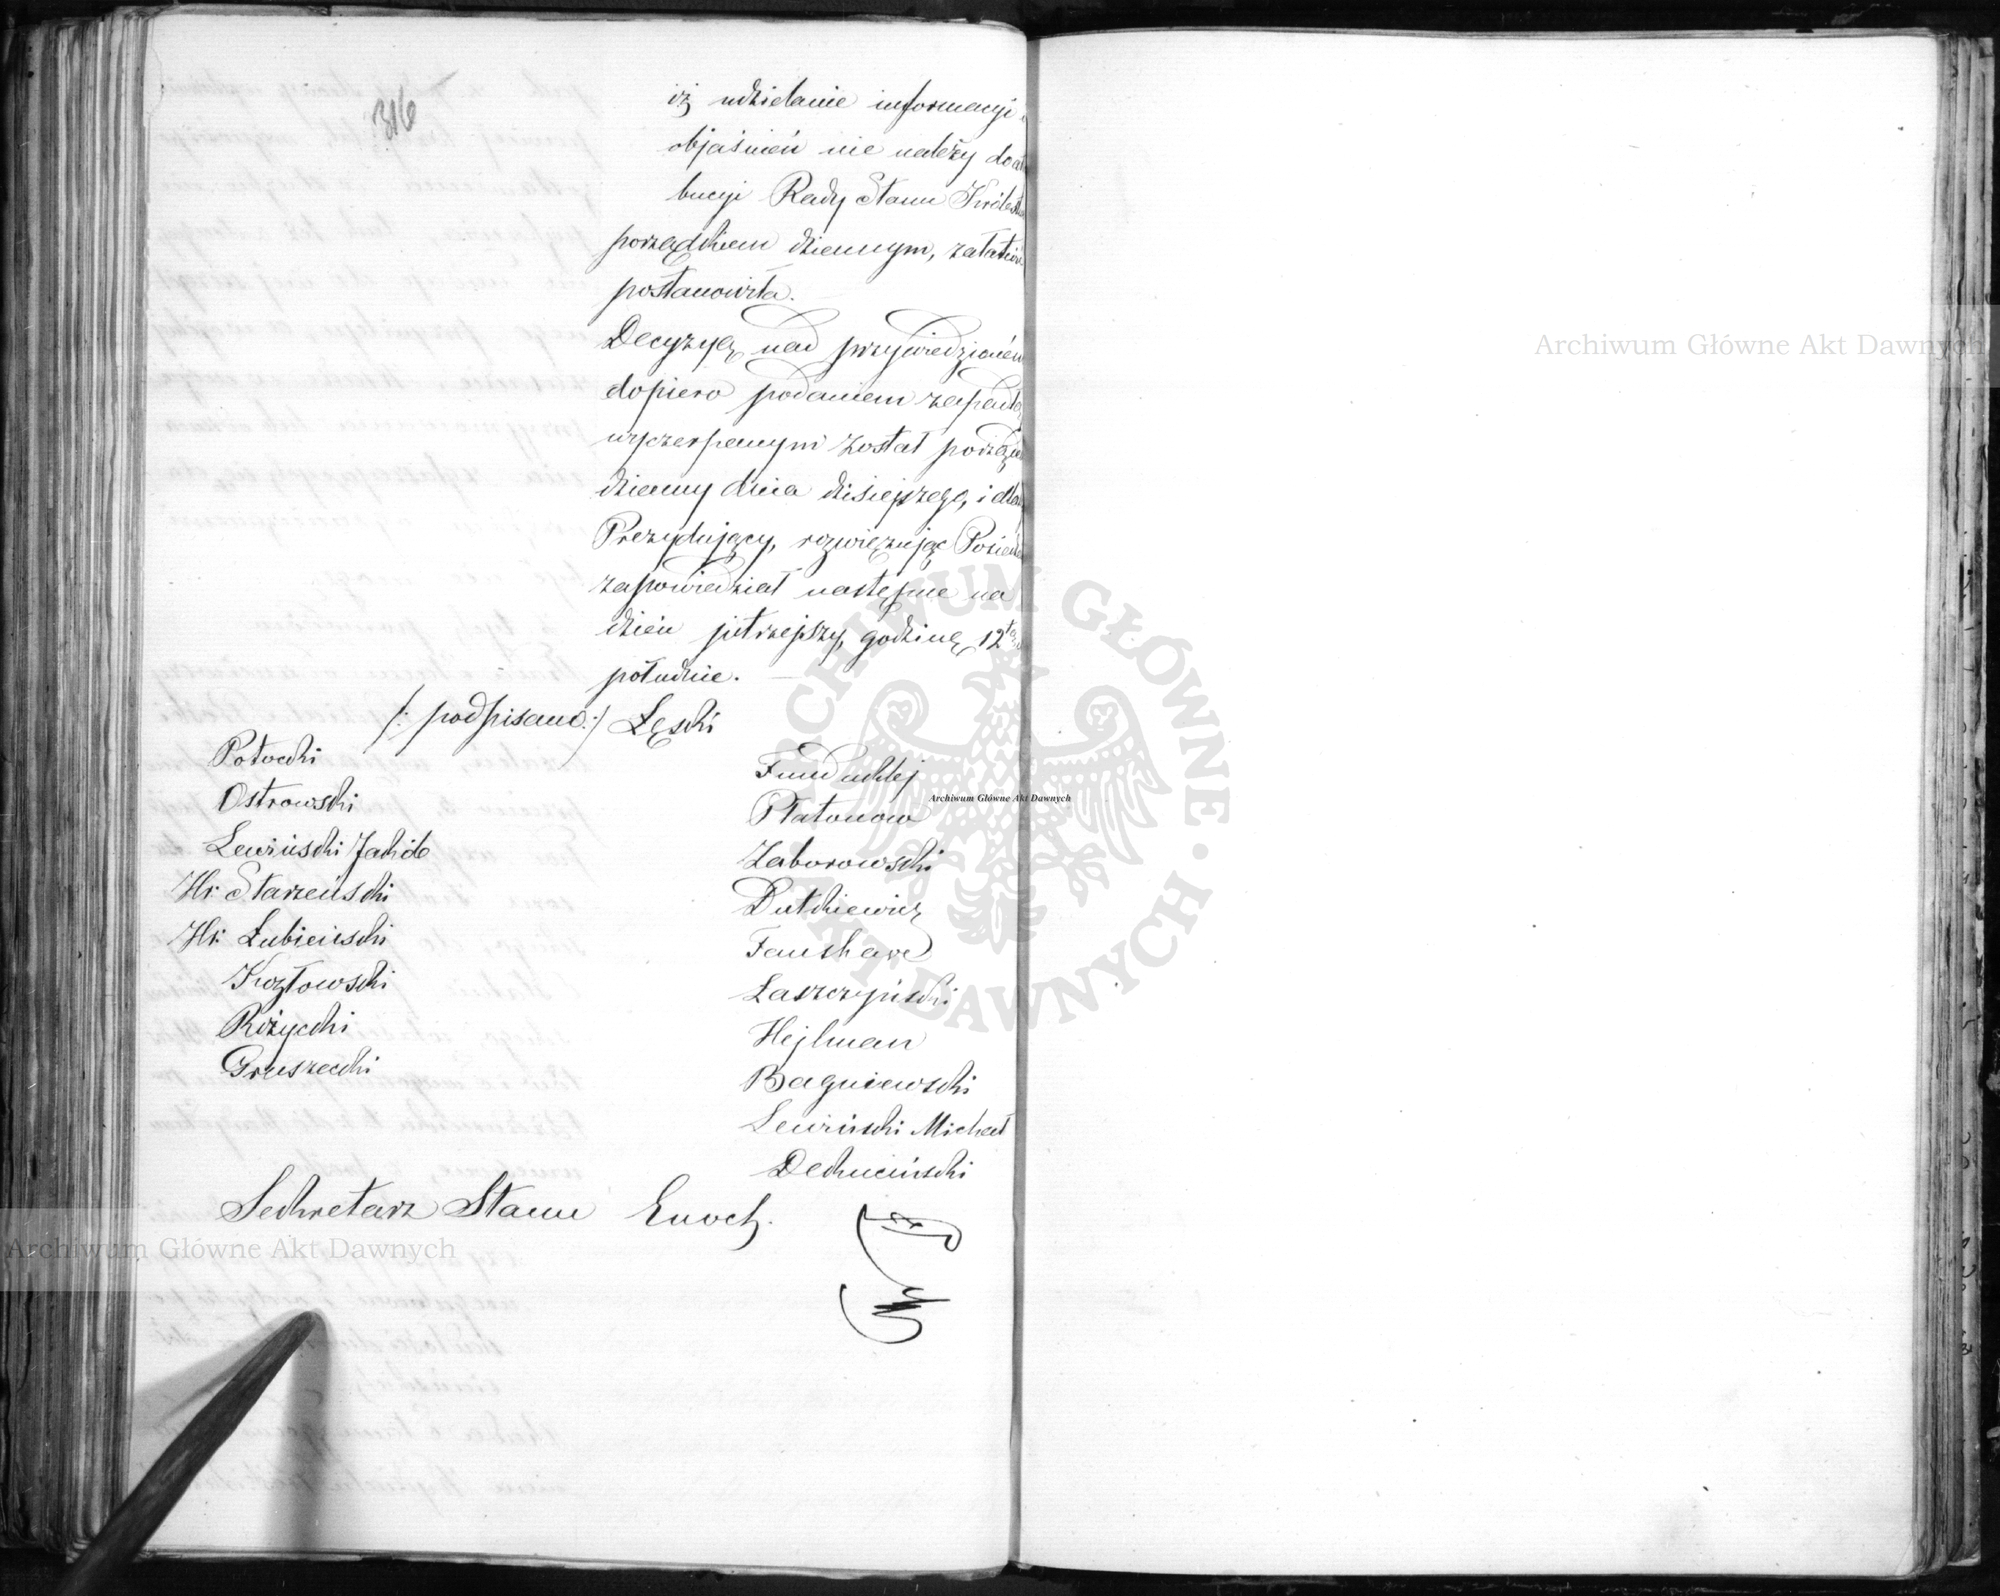 316
iż udzielanie informacyi i
objaśnień nie należy do at
bucyi Rady Stanu Królestwa
porządkiem dziennym, załatwić
postanowiła.
Decyzyą nad przywiedzioném
dopiero podaniem zapadłą,
wyczerpanym został porządek
dzienny dnia dzisiejszego, i dla
Prezydujący, rozwiązując Posied
zapowiedział następne na
dzień jutrzejszy, godzinę 12tą w
południe.
/: podpisano :/ Łęski
Potocki
Ostrowski
Lewiński Jakób
Hr. Starzeński
Hr. Łubieński
Kozłowski
Różycki
Gruszecki
Funduklej
Płatonow
Zaborowski
Dutkiewicz
Fanshave
Łaszczyński
Hejlman
Bagniewski
Lewiński Michał
Dekuciński
Sekretarz Stanu Enoch.
Archiwum Główne Akt Dawnych
Archiwum Główne Akt Dawnych
Archiwum Główne Akt Dawnych
ARCHIWUM GŁÓWNE AKT DAWNYCH